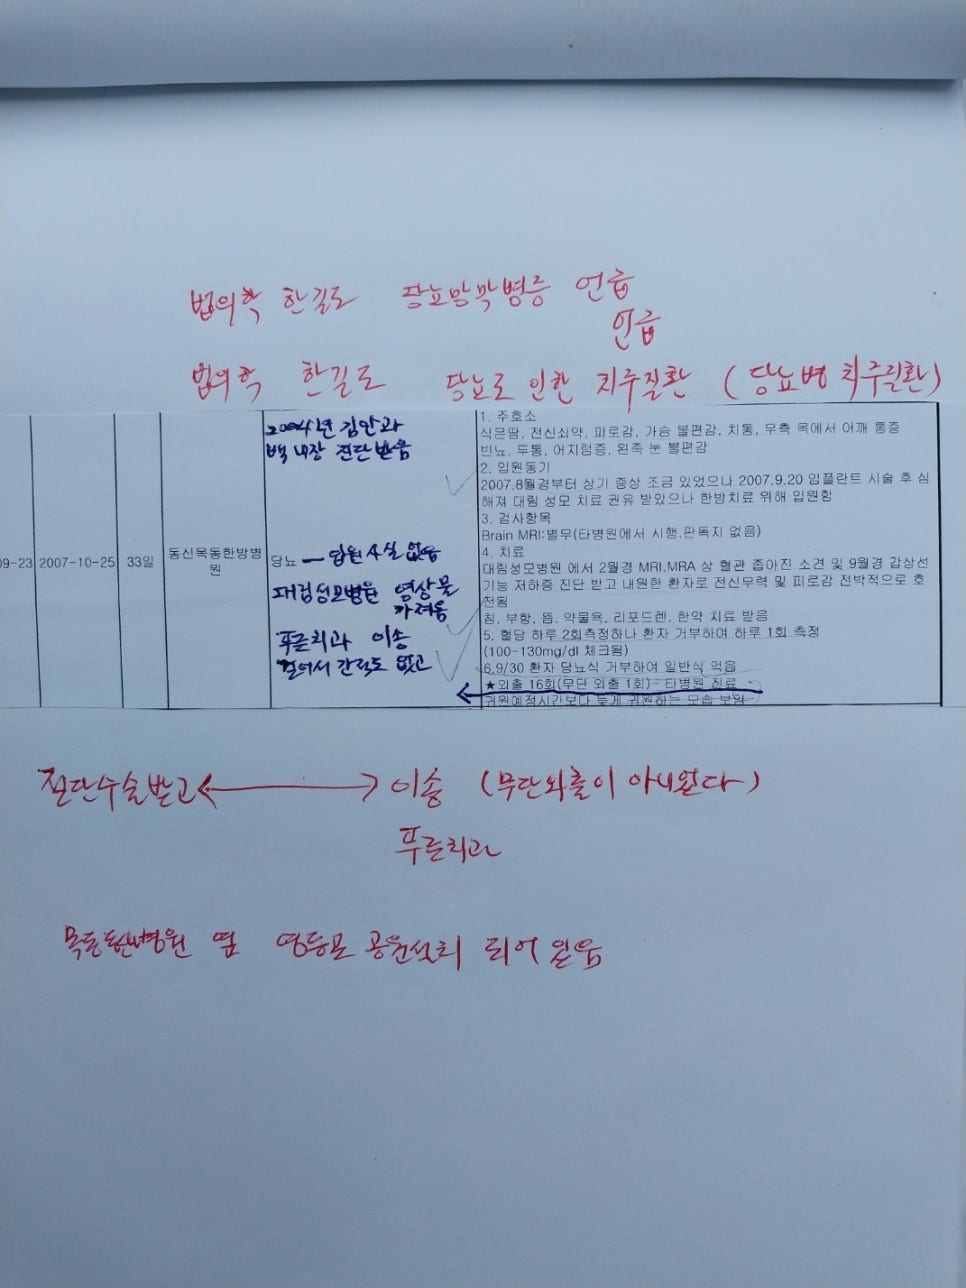 법의학 한길로 당뇨망막병증 언급
언급
법의학 한길로 당뇨로 인한 치주질환 (당뇨병 치주질환)
09-23
2007-10-25
33일
동신목동한방병원
2004년 김안과
백내장 진단받음
당뇨 — 입원사실 없음
대림성모병원 영상물
가져옴
푸른치과 이송
걸어서 간적도 없고
1. 주호소
식은땀, 전신쇠약, 피로감, 가슴 불편감, 치통, 우측 목에서 어깨 통증
빈뇨, 두통, 어지럼증, 왼쪽 눈 불편감
2. 입원동기
2007.8월경부터 상기 증상 조금 있었으나 2007.9.20 임플란트 시술 후 심
해져 대림 성모 치료 권유 받았으나 한방치료 위해 입원함
3. 검사항목
Brain MRI:별무(타병원에서 시행,판독지 없음)
4. 치료
대림성모병원 에서 2월경 MRI,MRA 상 혈관 좁아진 소견 및 9월경 갑상선
기능 저하증 진단 받고 내원한 환자로 전신무력 및 피로감 전박적으로 호
전됨
침, 부항, 뜸, 약물욕, 리포드렌, 한약 치료 받음
5. 혈당 하루 2회측정하나 환자 거부하여 하루 1회 측정
(100-130mg/dl 체크됨)
6.9/30 환자 당뇨식 거부하여 일반식 먹음
★외출 16회(무단 외출 1회)- 타병원 진료
귀원예정시간보다 늦게 귀원하는 모습 보임
진단수술받고 ↔ 이송 (무단외출이 아니였다)
푸른치과
병원 옆 영등포 공원 되어 있음